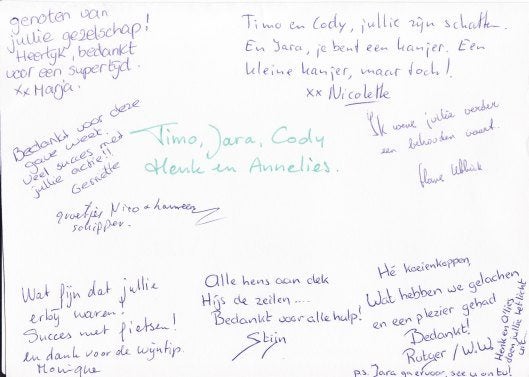 genoten van
jullie gezelschap!
Heerlijk, bedankt
voor een supertijd.
xx Marja.
Timo en Cody, jullie zijn schatten.
En Jara, je bent een kanjer. Een
kleine kanjer, maar toch!
xx Nicolette
Bedankt voor deze
gave week.
veel succes met
jullie actie!!
Gesnette
Timo, Jara, Cody
Henk en Annelies.
Ik wens jullie verder
een behouden vaart.
groetjes Nico +
schipper.
Wat fijn dat jullie
erbij waren!
Succes met fietsen!
en dank voor de wijntip.
Monique
Alle hens aan dek
Hijs de zeilen....
Bedankt voor alle hulp!
Stijn
Hé koeienkoppen,
Wat hebben we gelachen
en een plezier gehad
Bedankt!
Rutger / W.W.
Henk en Ollies
doen jullie het licht
uit
ps. Jara ga ervoor, see u on tv!